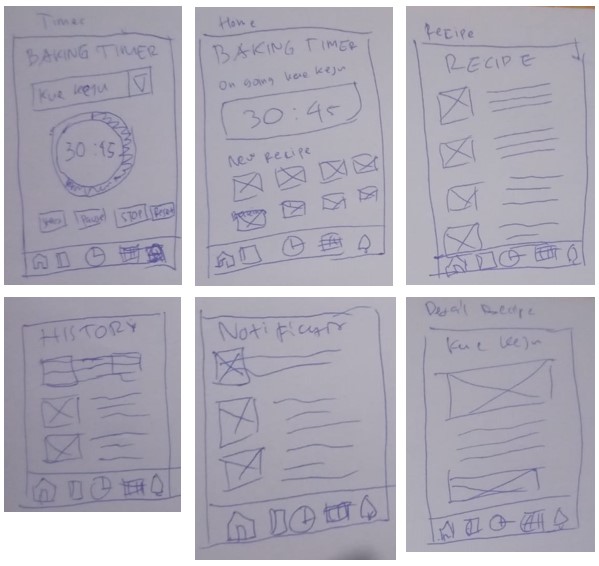 Timer
BAKING TIMER
Kue keju
30:45
Pause
STOP
Reset
Home
BAKING TIMER
On going kue keju
30:45
New Recipe
Recipe
RECIPE
HISTORY
Detail Recipe
Kue keju